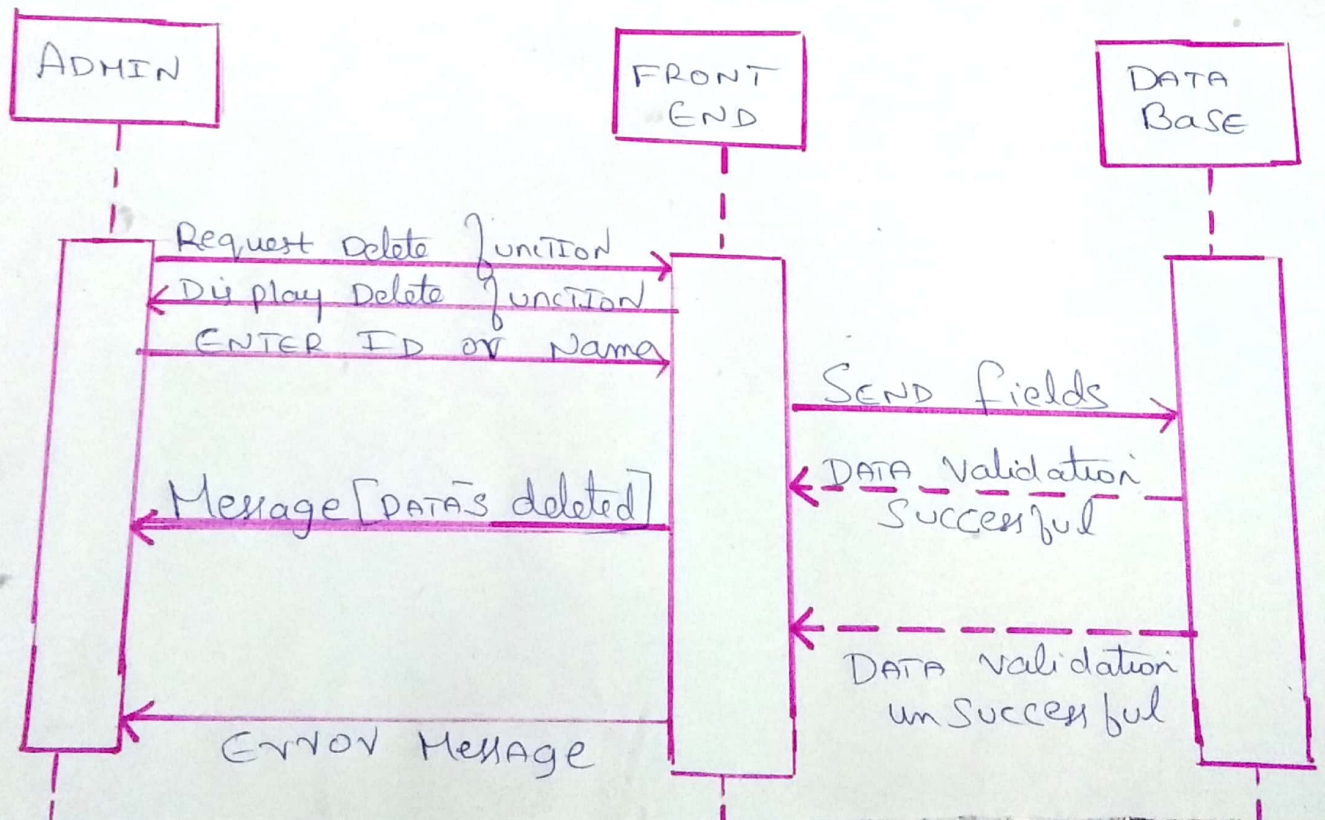 ADMIN
FRONT
END
DATA
BaSE
Request Delete function
Display Delete function
ENTER ID or Name
SEND fields
DATA Validation
Successful
Message [DATA'S deleted]
DATA validation
unSuccessful
Error Message